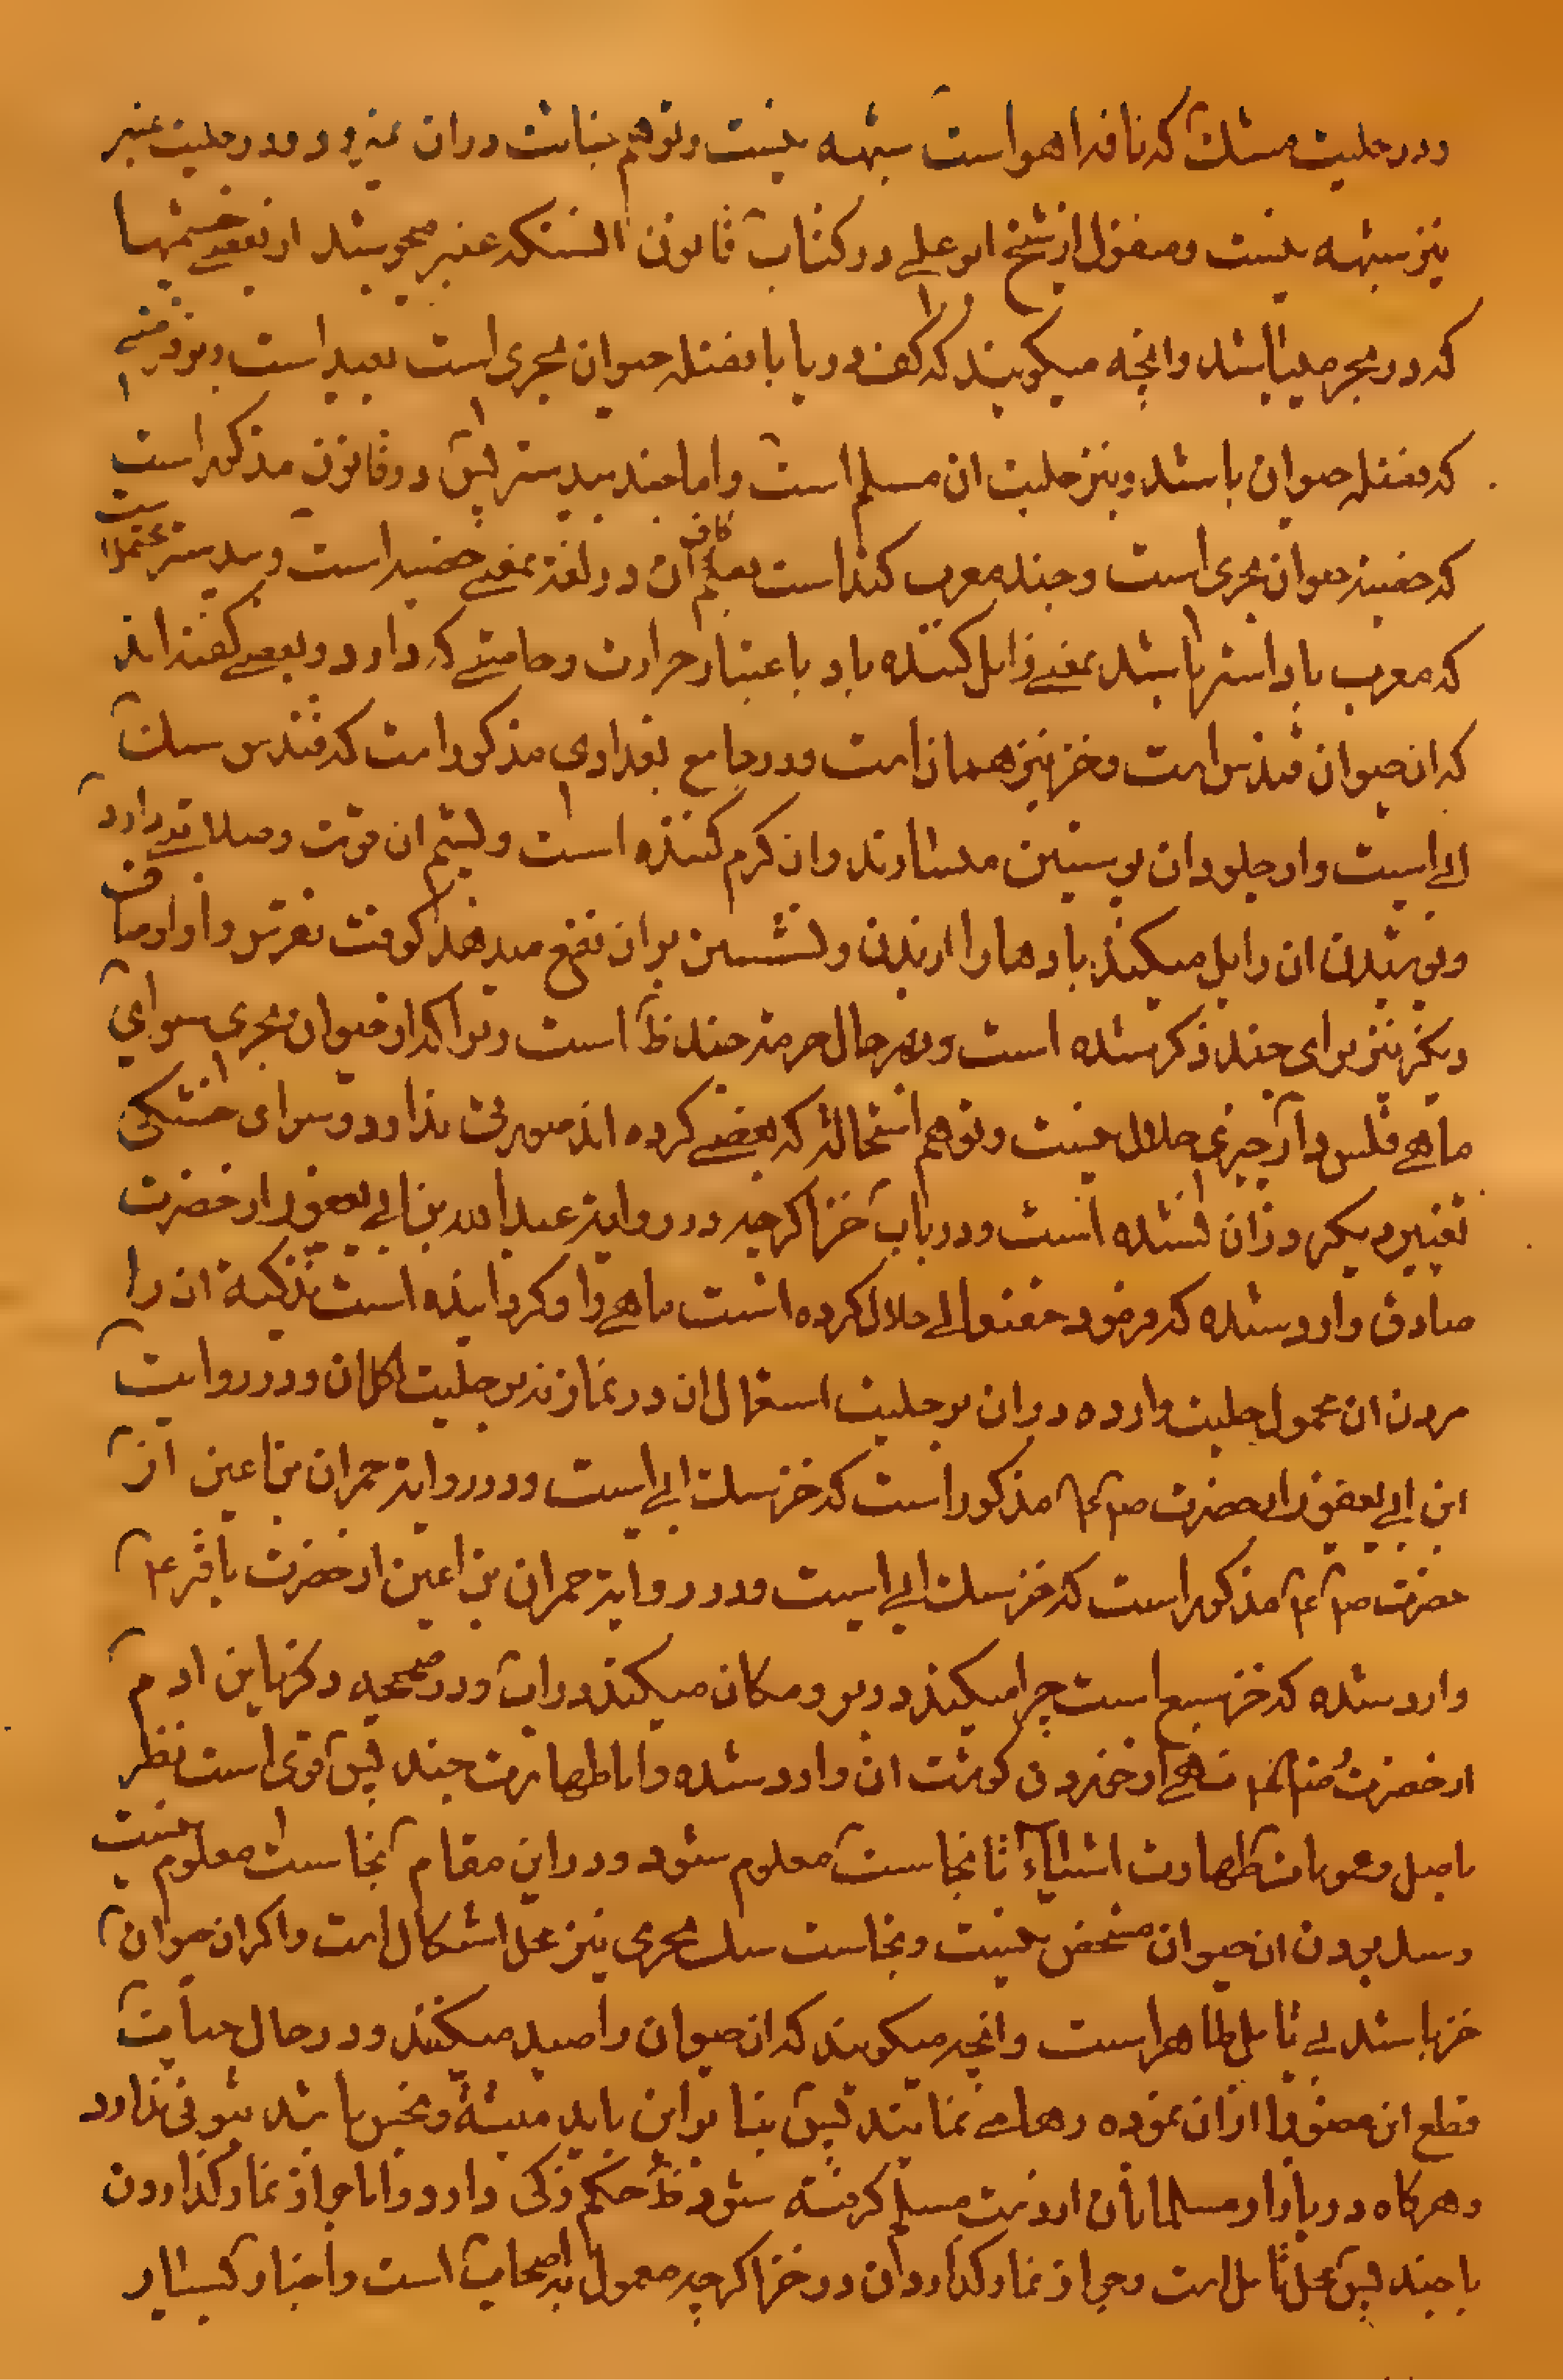 ودر حلیت مشک که نافه اهو است شبهه نیست وتوهم خباثت دران نمیرود ودر حلیت عنبر
نیز شبهه نیست ومنقول از شیخ ابو علی در کتاب قانون انستکه عنبر میجوشد از بعضی چشمها
که در بحر میباشد وانچه میکویند که کف دریا یا فضله حیوان بحری است بعید است وبر فرضی
که فضله حیوان باشد ونیز حلیت ان مسلم است واما جند بیدستر پس در قانون مذکور است
که خصیه حیوان بحری است وجند معرب کند است بضم کاف ان در لغة بمعنی خصیه است وبیدستر محتملست
که معرب باد استر باشد بمعنی زایل کننده باد باعتبار حرارت وحامیتی که دارد وبعضی گفته اند
که ان حیوان قندس است وخز نیز همان است ودر جامع بغدادی مذکور است که قندس سک
ابی است واز جلود ان پوستین میسازند وان کرم کننده است وپشم ان قوت وصلابتی دارد
وپوشیدن ان زایل میکند بادها را از بدن ونشستن بر ان نفع میدهد کوفت نقرس را واوصاف
دیکر نیز برای جند ذکر شده است ودر هر حال حرمة جند ظ است زیرا که از حیوان بحری سوای
ماهی فلس دار چیزی حلال نیست وتوهم استحاله که بعضی کرده اند صورتی ندارد وسوای خشکی
تغییر دیکر در ان نشده است ودر باب خز اکرچه در روایة عبدالله بن ابی یعفور از حضرت
صادق وارد شده که فرمود حقتعالی حلال کرده است ماهی را وکردانیده است تذکیه ان را
مردن ان محمول حلیت وارده در ان بر حلیت استعمال ان در نماز نه بر حلیت اکل ان ودر روایت
ابن ابی یعفور از حضرت ص ع مذکور است که خز سک ابی است ودر روایة حمران بن اعین از
حضرت ص ع مذکور است که خز سک ابی است ودر روایة حمران بن اعین از حضرت باقر ع
وارد شده که خز سبع است چرا میکند در بر ومکان میکند در اب ودر صحیحه زکریا بن ادم
از حضرت رضا ع نهی از خوردن کوشت ان وارد شده واما طهارت جند پس قوی است نظر
باصل وعمومات طهارت اشیاء تا نجاست معلوم شود ودر این مقام نجاست معلوم نیست
وسک بودن ان حیوان مشخص نیست ونجاست سک بحری نیز محل اشکال است واکر ان حیوان
خز باشد بی تامل طاهر است وانچه میکویند که ان حیوان را صید میکنند ودر حال حیات
قطع این عضو را از ان نموده رها می نمایند پس بنا بر این باید میته ونجس باشد ثبوتی ندارد
وهر کاه در بازار مسلمانان از دست مسلم کرفته شود ظ حکم ذکی دارد واما جواز نماز کذاردن
با جند پس محل تامل است وجواز نماز کذاردن در خز اکرچه معمول به اصحاب است واخبار بسیار